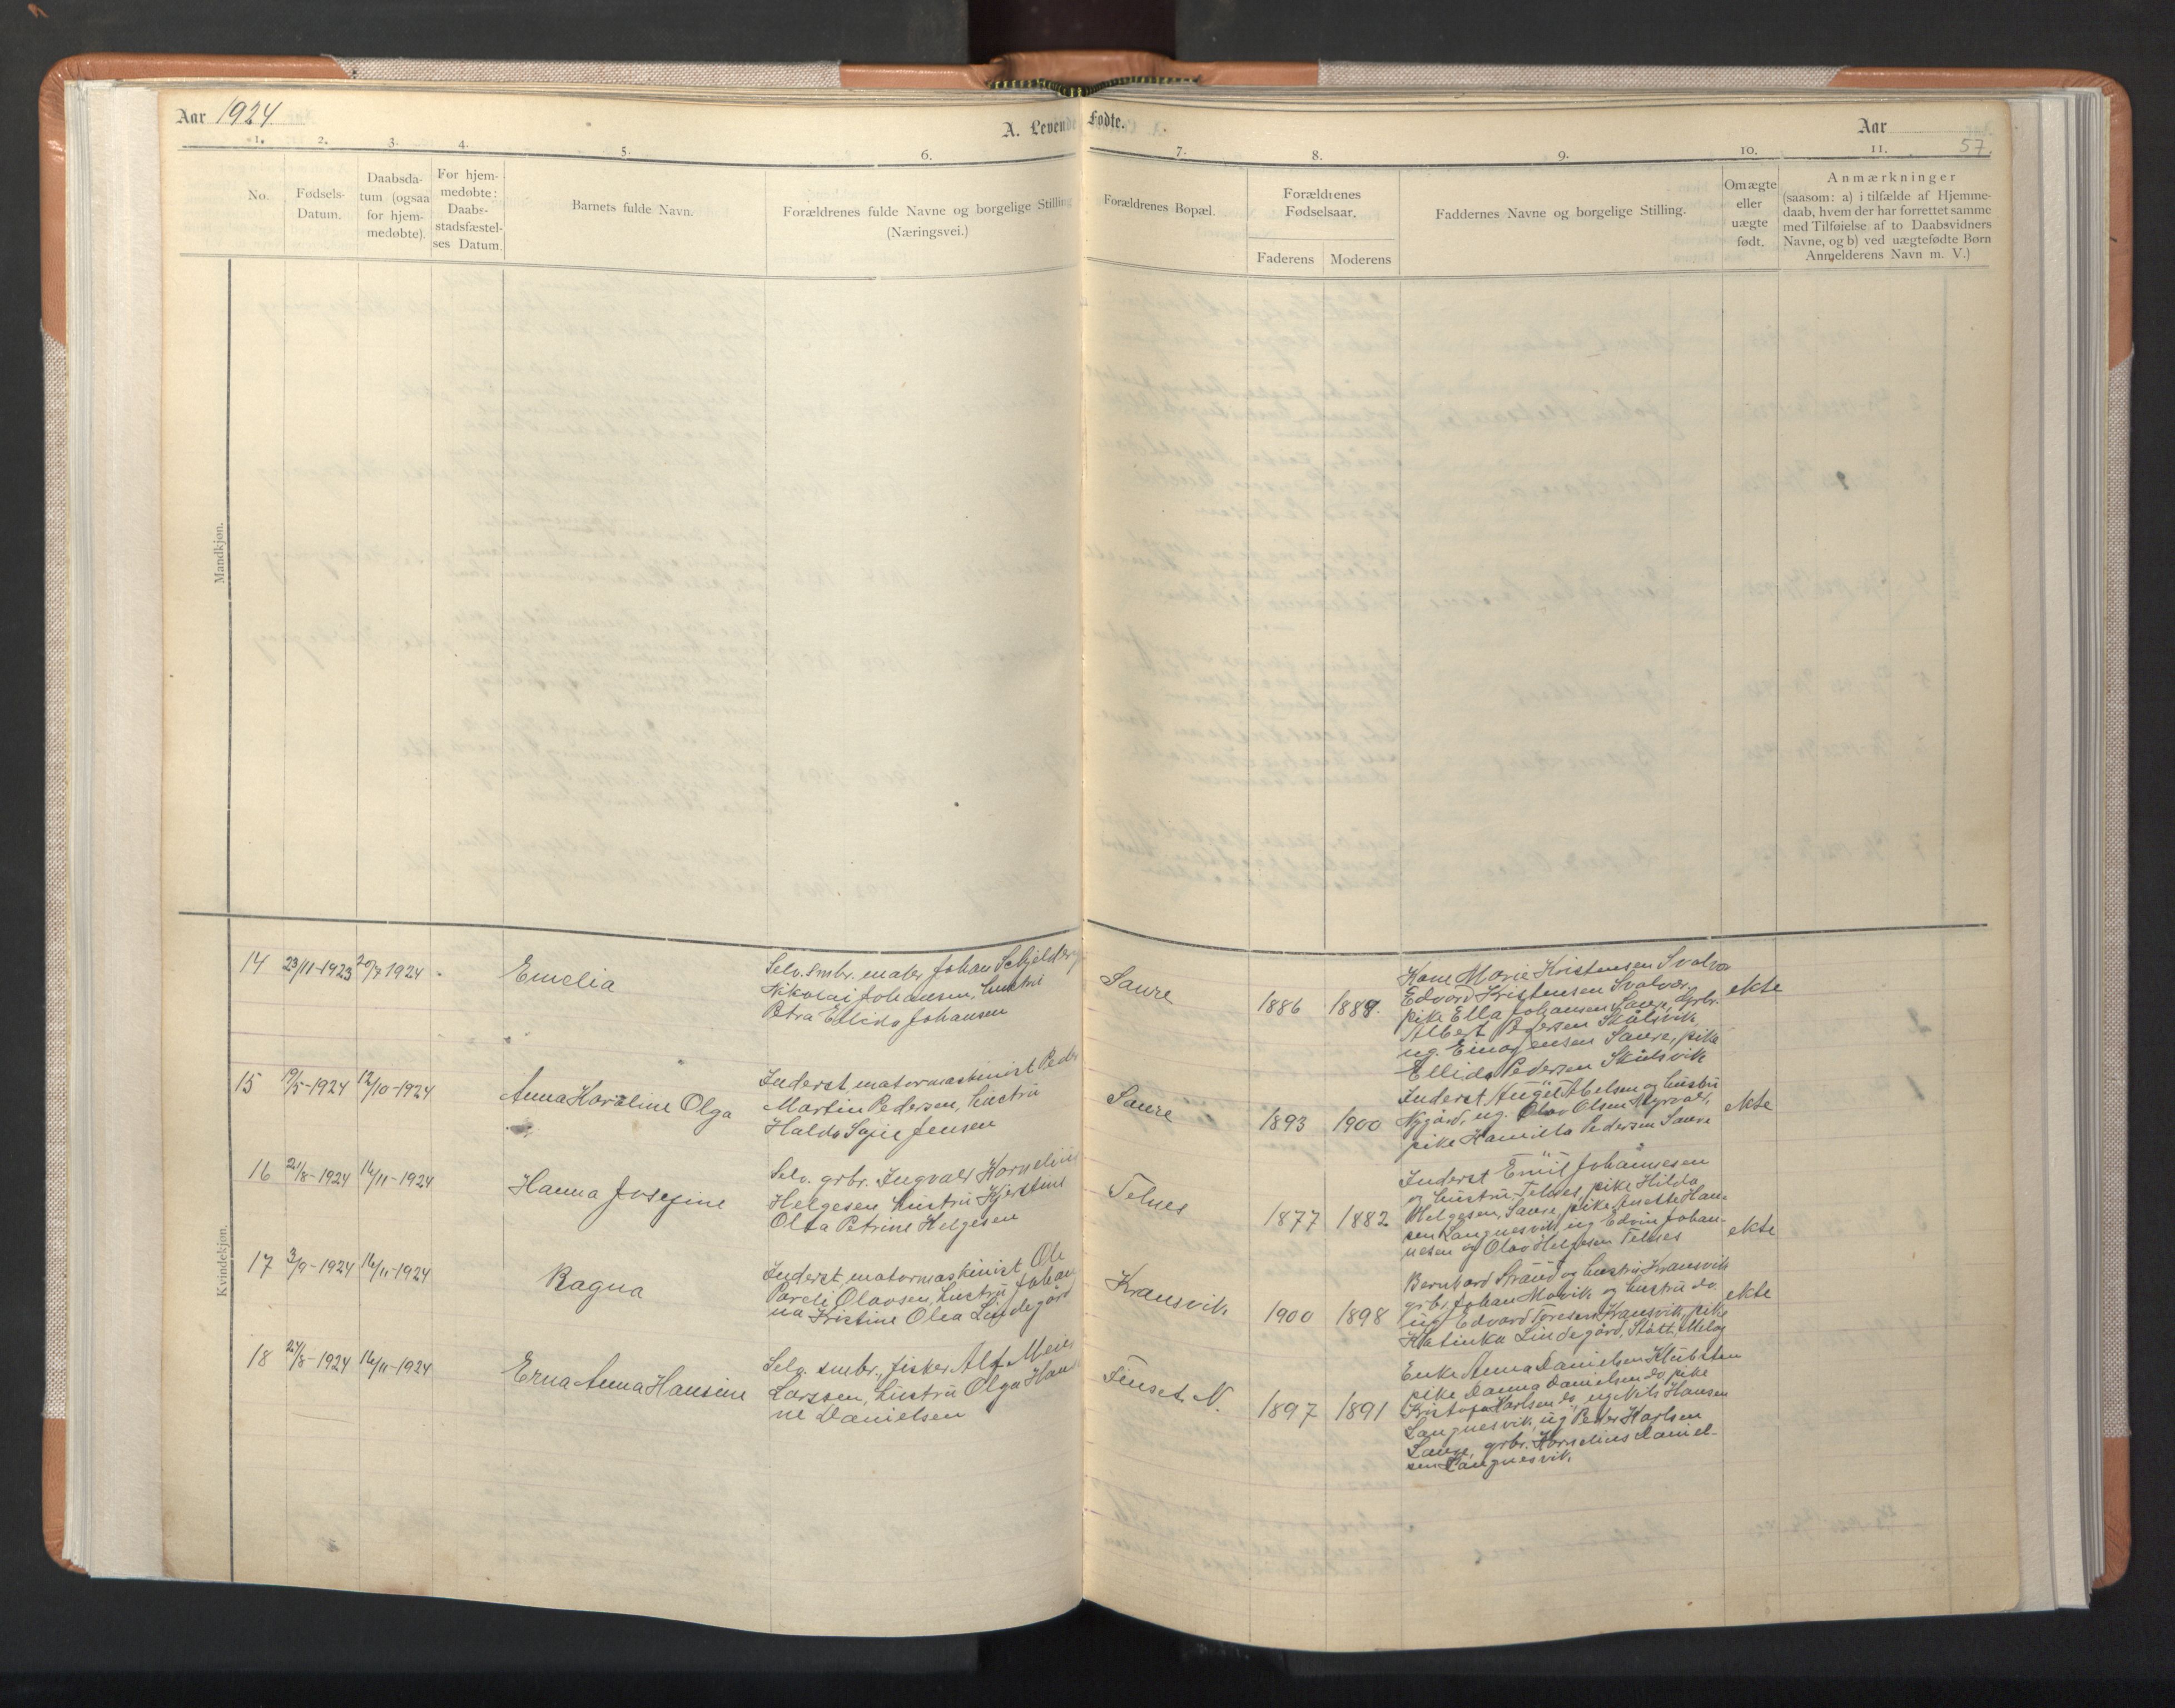 Aar 1924
A. Levende Fødte.
Aar
57.
1. 2. 3. 4. 5. 6. 7. 8. 9. 10. 11.
No.
Fødsels-
Datum.
Daabsda-
tum (ogsaa
for hjem-
medøbte).
For hjem-
medøbte:
Daabs-
stadsfæstel-
ses Datum.
Barnets fulde Navn.
Forældrenes fulde Navne og borgelige Stilling
(Næringsvei.)
Forældrenes Bopæl.
Forældrenes
Fødselsaar.
Faderens Moderens
Faddernes Navne og borgelige Stilling.
Om ægte
eller
uægte
født.
Anmærkninger
(saasom: a) i tilfælde af Hjemme-
daab, hvem der har forrettet samme
med Tilføielse af to Daabsvidners
Navne, og b) ved uægtefødte Børn
Anmelderens Navn m. V.)
Mandkjøn.
Kvindekjøn.
14 23/11-1923 20/7 1924
Emelia
Selv. smbr. maler Johan Schjelderup
Nikolai Johansen, hustru
Petra Ellida Johansen
Saure
1886 1889.
Hans Marie Kristensen Svolvær
Edvard Kristensen Svolvær,
pike Ella Johansen Saure, Grbr.
Albert Pedersen Skålsvik
ug. Einar Jensen Saure, pike
Ellida Pedersen Skålsvik
ekte
15 19/5-1924 12/10-1924
Anna Karoline Olga
Inderst, motormaskinist Peder
Martin Pedersen, hustru
Halda Sofie Jensen
Saure
1893 1900
Inderst August Abelsen og hustru
Nygård, ug. Olav Olsen Myrvold,
pike Hamilla Pedersen Saure
ekte
16 21/8-1924 16/11-1924
Hanna Josefine
Selv. grbr. Ingvald Kornelius
Helgesen hustru Kjerstine
Olea Petrine Helgesen
Telnes
1877 1882
Inderst Emil Johannesen
og hustru Telnes, pike Hilda
Helgesen, Saure, pike Anette Han-
sen Langnesvik, ug Edvin Johan-
nesen og Olav Helgesen Telnes
ekte
17 3/9-1924 16/11-1924
Ragna
Inderst, motormaskinist Ole
Pareli Olavsen, hustru Johan
na Kristine Olea Lindegård
Kransvik
1900 1898
Bernhard Strand og hustru Kransvik
grbr. Johan Movik og hustru do.
ug Edvard Toresen Kransvik, pike
Katinka Lindegård, Støtt, Meløy
ekte
18 24/8-1924 16/11-1924
Erna Anna Hansine
Selv. smbr., fisker Alf Meier
Larssen, hustru Olga Hansi
ne Danielsen
Finset. N.
1897 1891
Enke Anna Danielsen Klubsten
pike Danna Danielsen do, pike
Kristofa Karlsen do, ug Nils Hansen
Langnesvik, ug Peder Karlsen
Saure, grbr. Kornelius Daniel-
sen Langnesvik